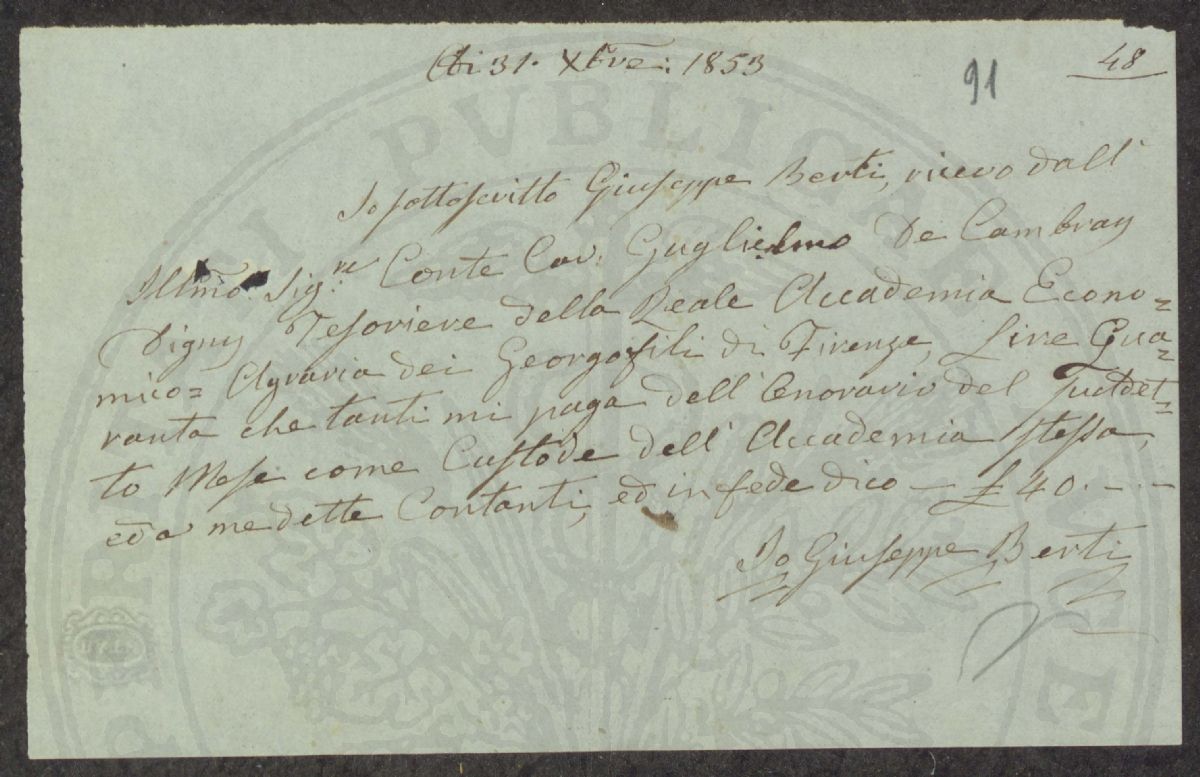 Adi 31. Xbre: 1853
48
91
Io sottoscritto Giuseppe Berti, ricevo dall'
Illmo Sigre Conte Cav. Guglielmo De Cambray
Digny Tesoriere della Reale Accademia Econo=
mico= Agraria dei Georgofili di Firenze, Lire Qua=
ranta che tanti mi paga dell'Onorario del Sudet=
to Mese come Custode dell'Accademia stessa,
ed a me dette Contanti, ed in fede dico — £ 40. - . -
Io Giuseppe Berti
REI PVBLICAE